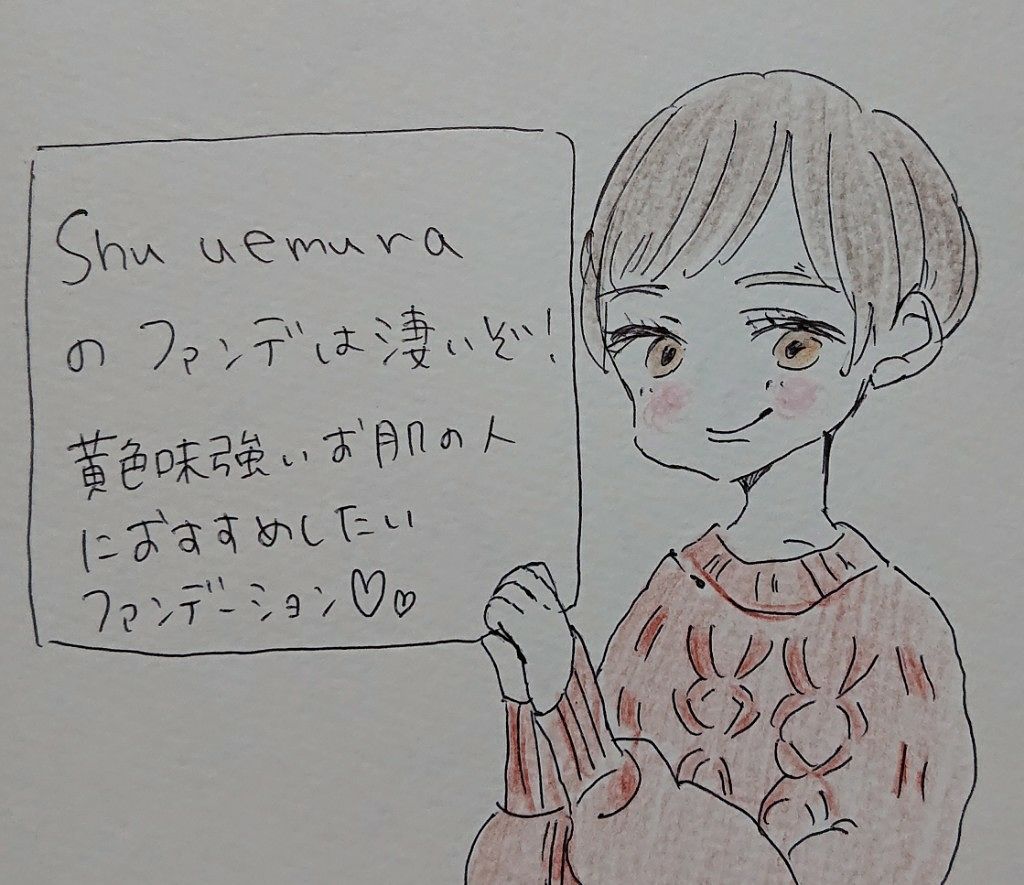 Shu uemura
のファンデは凄いぞ!
黄色味強いお肌の人
におすすめしたい
ファンデーション♡♡